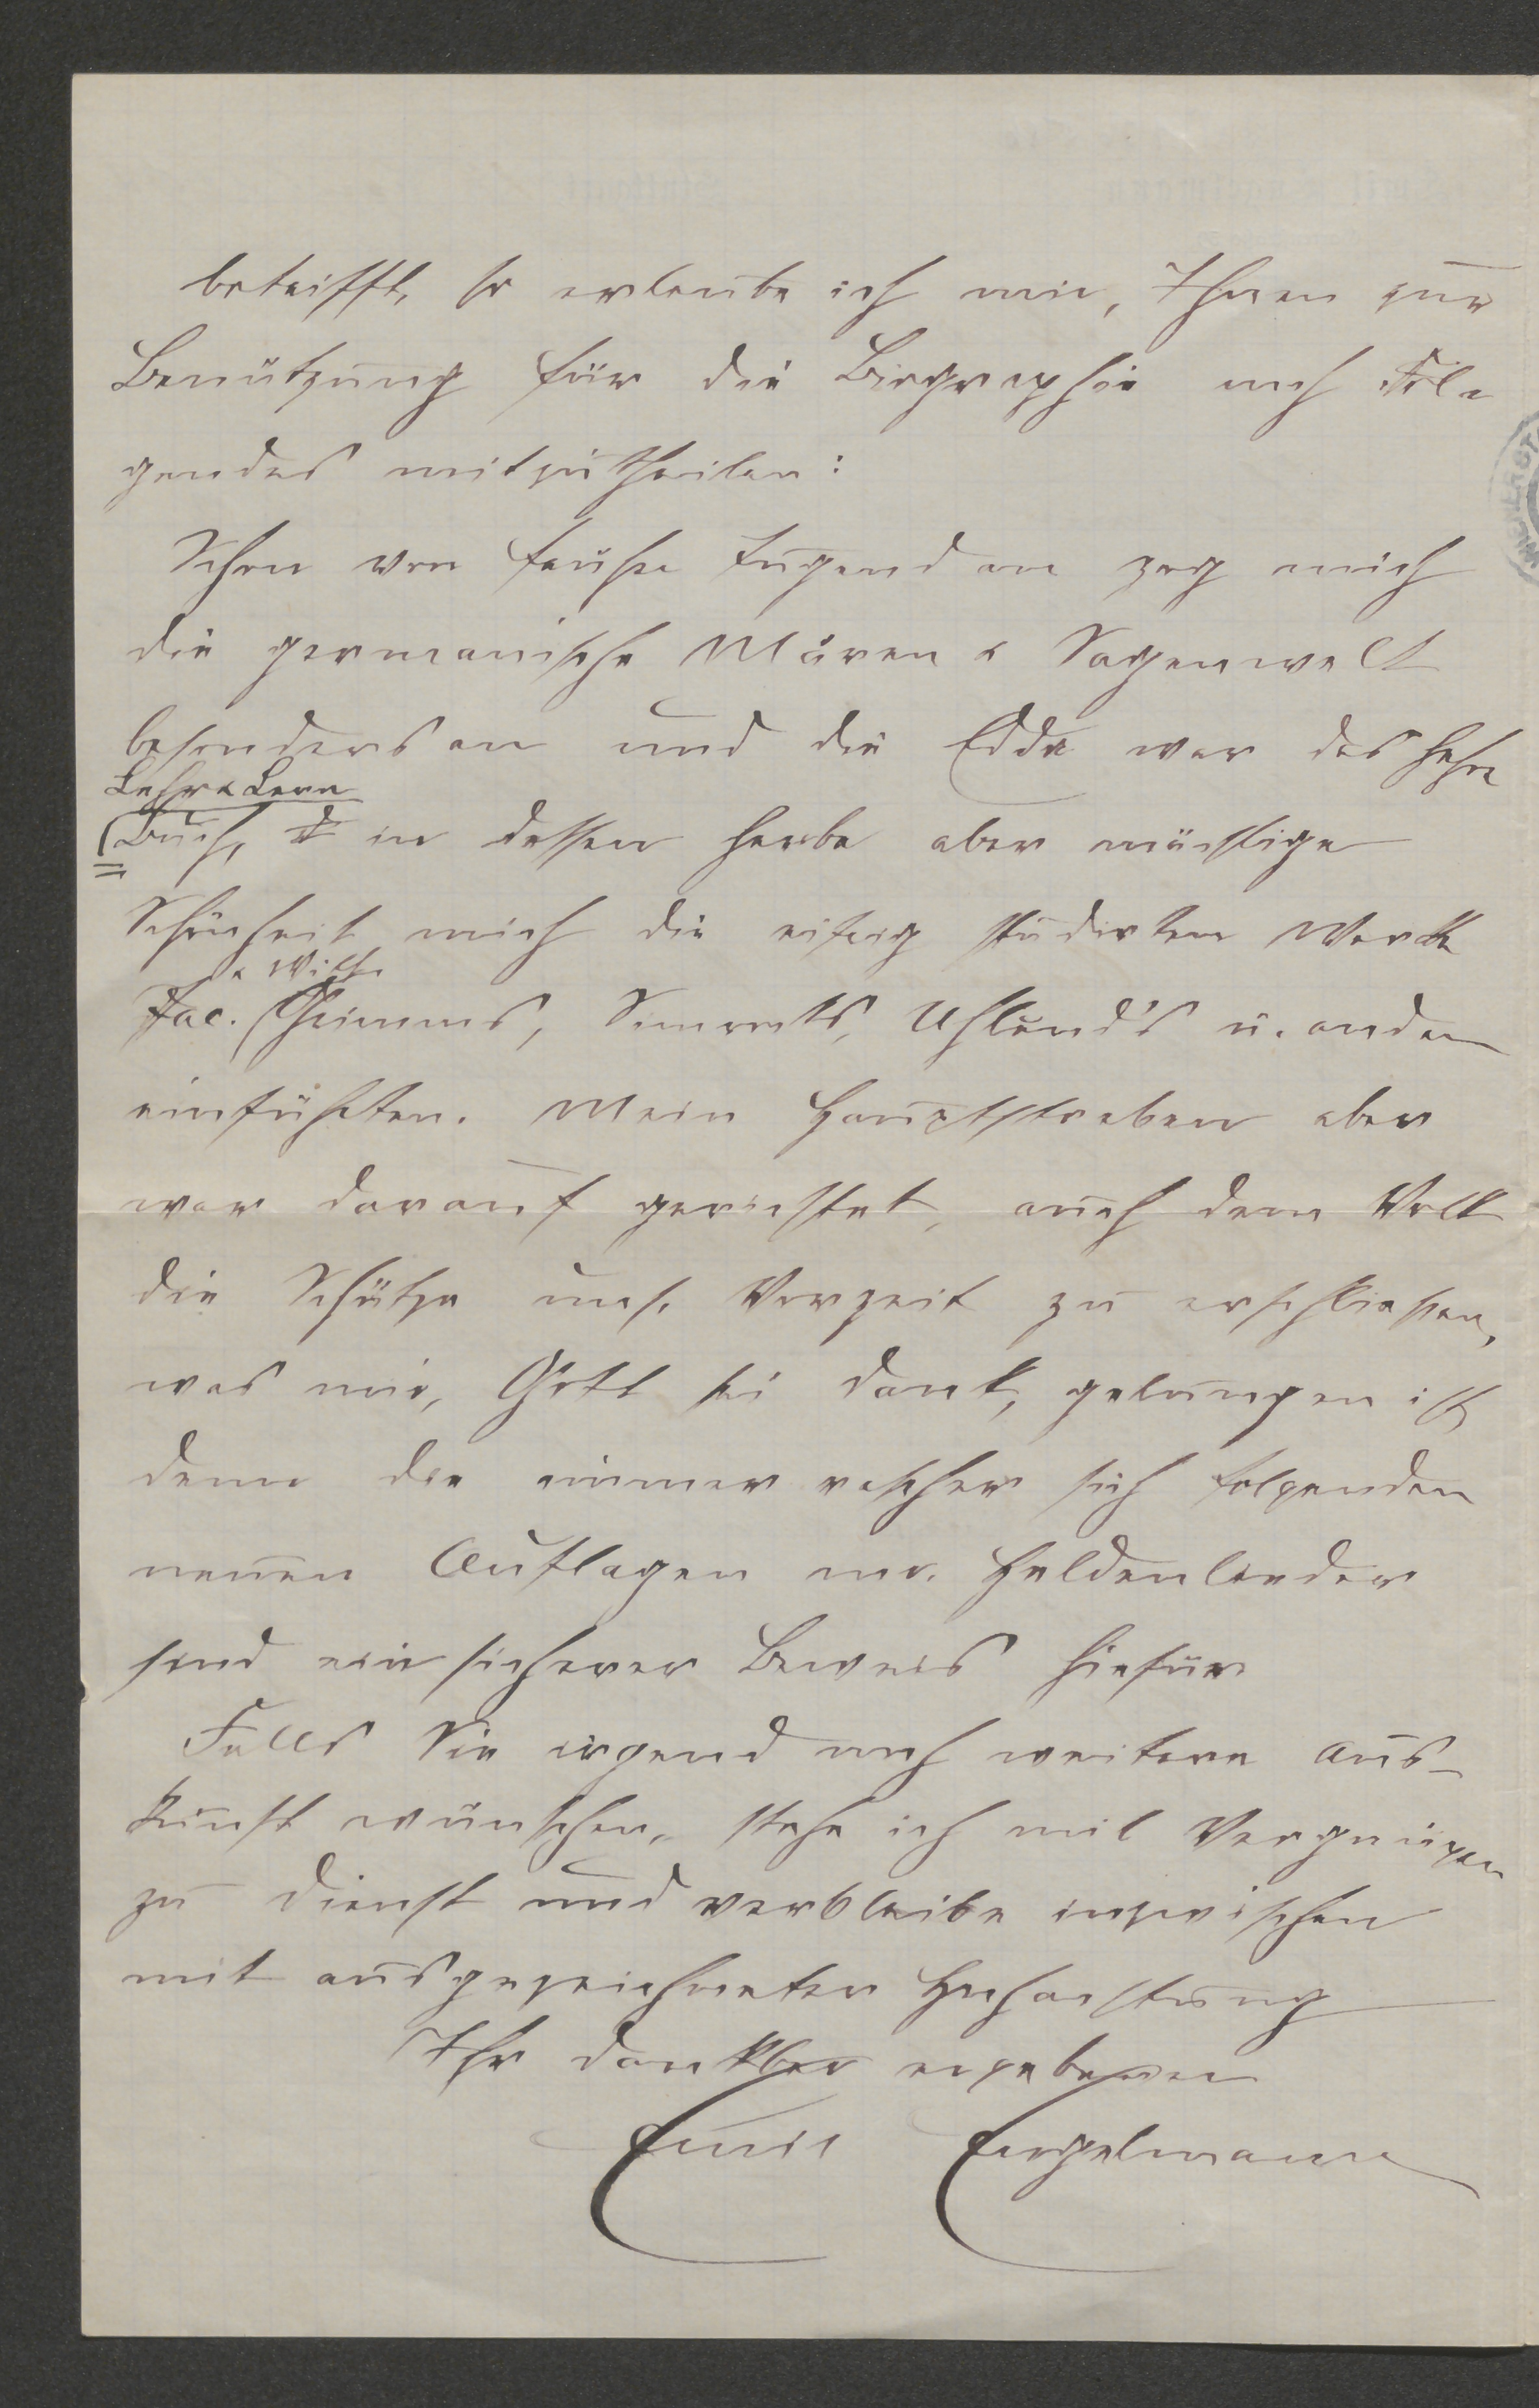 betrifft, so erlaube ich mir, Ihnen zur
Benützung für die Biographie noch Fol-
gendes mitzutheilen:
Schon von früher Jugend an zog mich
die germanische Mären & Sagenwelt
besonders an und die Edda war das hohe
Lehr & Lern
Buch, in dessen herbe aber mächtige
Schönheit mich die eifrig studirten Werke
& Wilh.
Jac. Grimms, Simrocks, Uhland's u. andern
einführten. Mein Hauptstreben aber
war darauf gerichtet, auch dem Volk
die Schätze uns. Vorzeit zu erschließen,
was mir, Gott sei Dank, gelungen ist,
denn die immer rascher sich folgenden
neuen Auflagen mr. Heldenlieder
sind ein sicherer Beweis hiefür
Falls Sie irgend noch weitere Aus-
kunft wünschen, stehe ich mit Vergnügen
zu Dienst und verbleibe inzwischen
mit ausgezeichneter Hochachtung
Ihr dankbar ergebener
Emil Engelmann